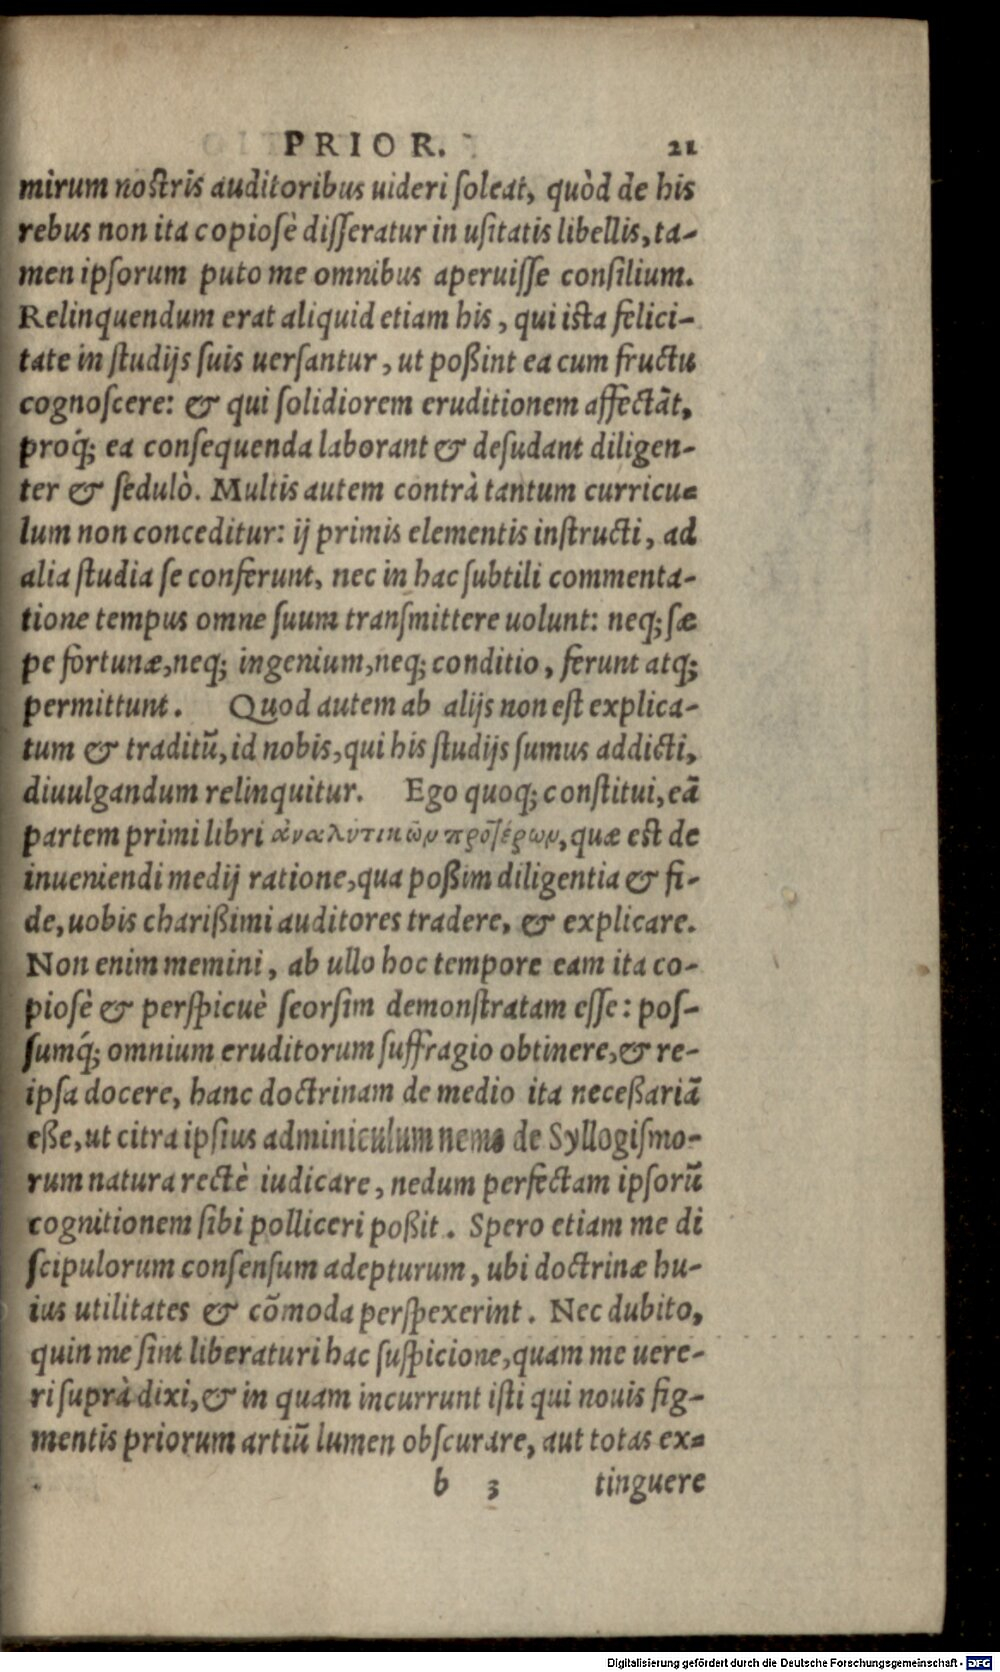 PRIOR. 21
mirum nostris auditoribus uideri soleat, quòd de his
rebus non ita copiosè disseratur in usitatis libellis, ta-
men ipsorum puto me omnibus aperuisse consilium.
Relinquendum erat aliquid etiam his, qui ista felici-
tate in studijs suis uersantur, ut poßint ea cum fructu
cognoscere: & qui solidiorem eruditionem affectāt,
proq́; ea consequenda laborant & desudant diligen-
ter & sedulò. Multis autem contrà tantum curricu-
lum non conceditur: ij primis elementis instructi, ad
alia studia se conferunt, nec in hac subtili commenta-
tione tempus omne suum transmittere uolunt: neq; sæ
pe fortunæ, neq; ingenium, neq; conditio, ferunt atq;
permittunt. Quod autem ab alijs non est explica-
tum & traditū, id nobis, qui his studijs sumus addicti,
diuulgandum relinquitur. Ego quoq; constitui, eā
partem primi libri ἀναλυτικῶν προτέρων, quæ est de
inueniendi medij ratione, qua poßim diligentia & fi-
de, uobis charißimi auditores tradere, & explicare.
Non enim memini, ab ullo hoc tempore eam ita co-
piosè & perspicuè seorsim demonstratam esse: pos-
sumq́; omnium eruditorum suffragio obtinere, & re-
ipsa docere, hanc doctrinam de medio ita neceßariā
eße, ut citra ipsius adminiculum nemo de Syllogismo-
rum natura rectè iudicare, nedum perfectam ipsorū
cognitionem sibi polliceri poßit. Spero etiam me di
scipulorum consensum adepturum, ubi doctrinæ hu-
ius utilitates & cōmoda perspexerint. Nec dubito,
quin me sint liberaturi hac suspicione, quam me uere-
ri suprà dixi, & in quam incurrunt isti qui nouis fig-
mentis priorum artiū lumen obscurare, aut totas ex-
b 3 tinguere
Digitalisierung gefördert durch die Deutsche Forschungsgemeinschaft - DFG